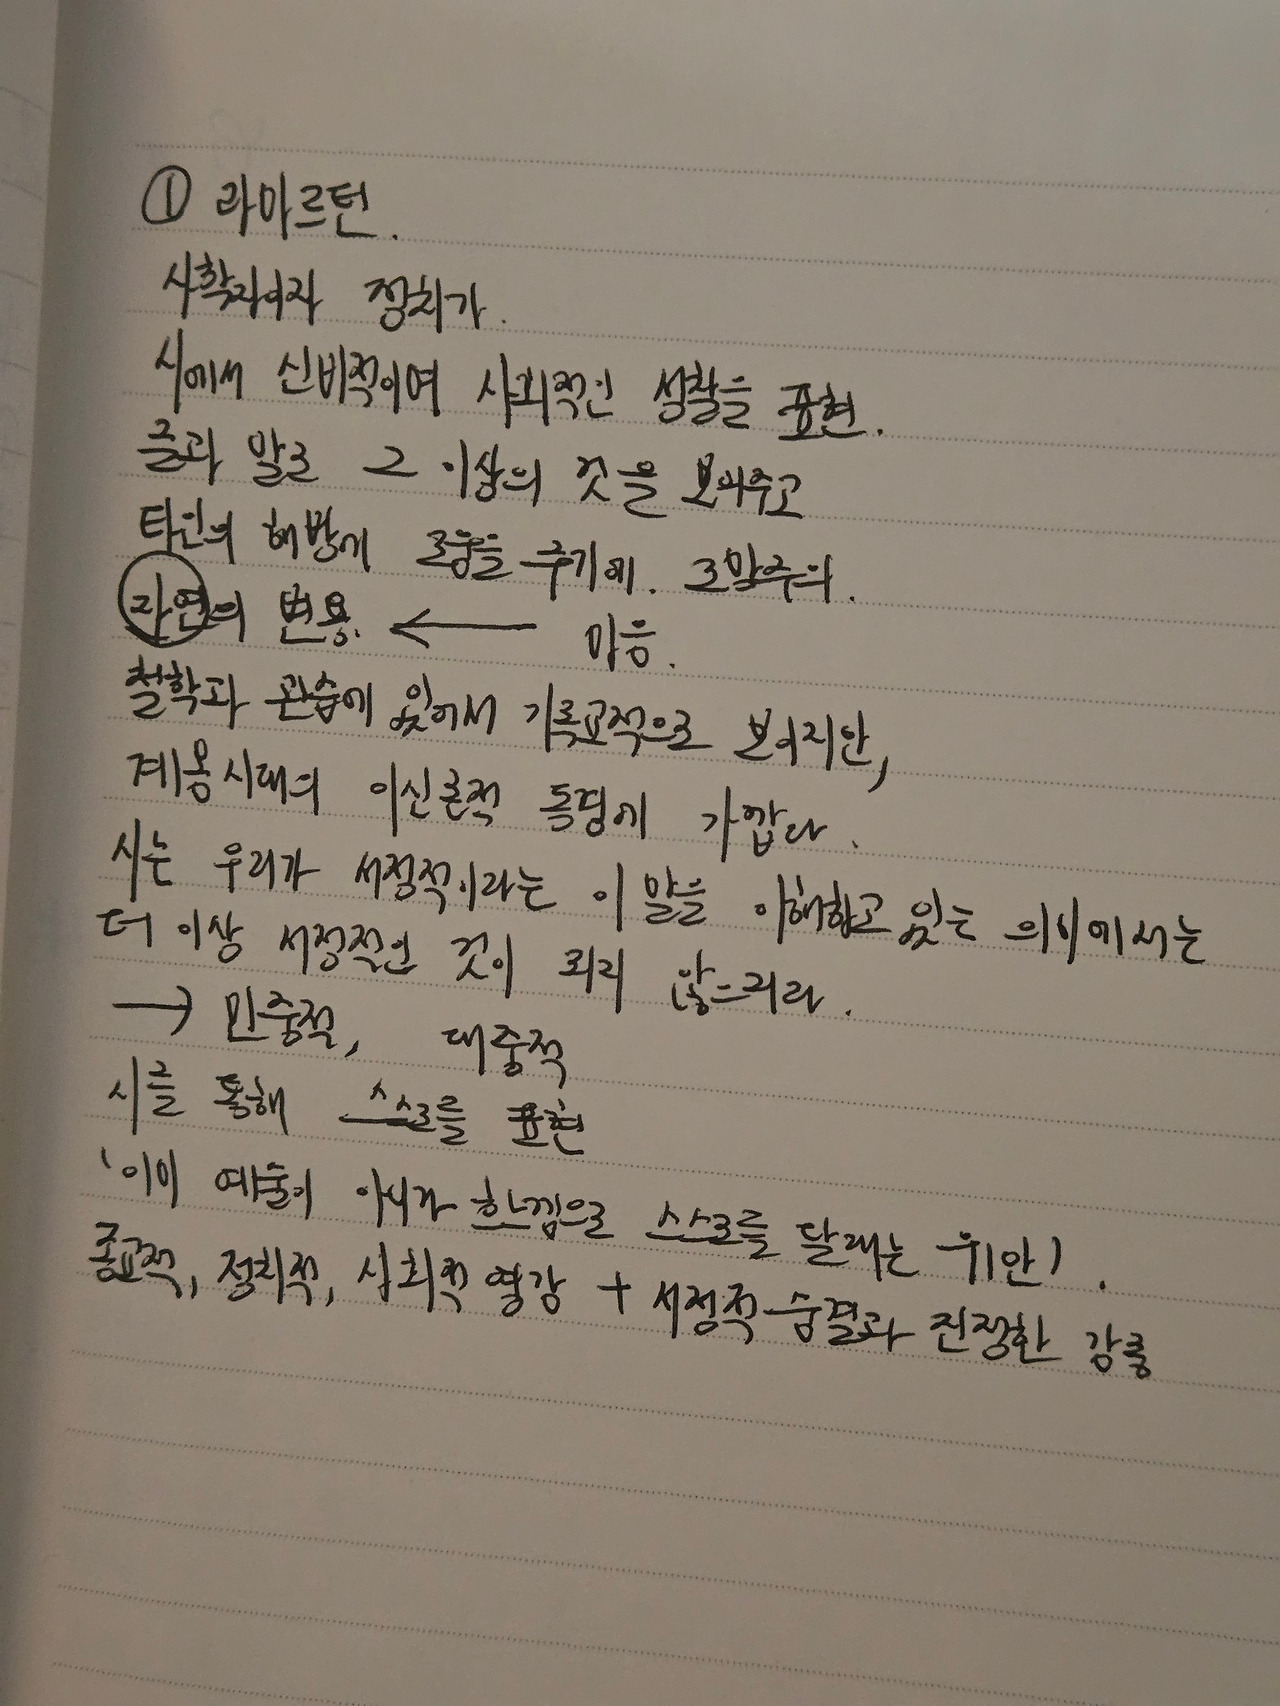 ① 라마르틴.
사학자이자 정치가.
시에서 신비적이며 사회적인 성찰을 표현.
글과 말로 그 이상의 것을 보여주고
타인의 해방에 도움을 주기에. 로망주의.
자연의 변용. ← 마음.
철학과 관습에 있어서 기독교적으로 보이지만,
계몽시대의 이신론적 특징에 가깝다.
시는 우리가 서정적이라는 이 말을 이해하고 있는 의미에서는
더 이상 서정적인 것이 되지 않으리라.
→ 민중적, 대중적
시를 통해 스스로를 표현
'이미 예술이 아니라 한낌으로 스스로를 달래는 위안'.
종교적, 정치적, 사회적 영감 + 서정적 숨결과 진정한 감동